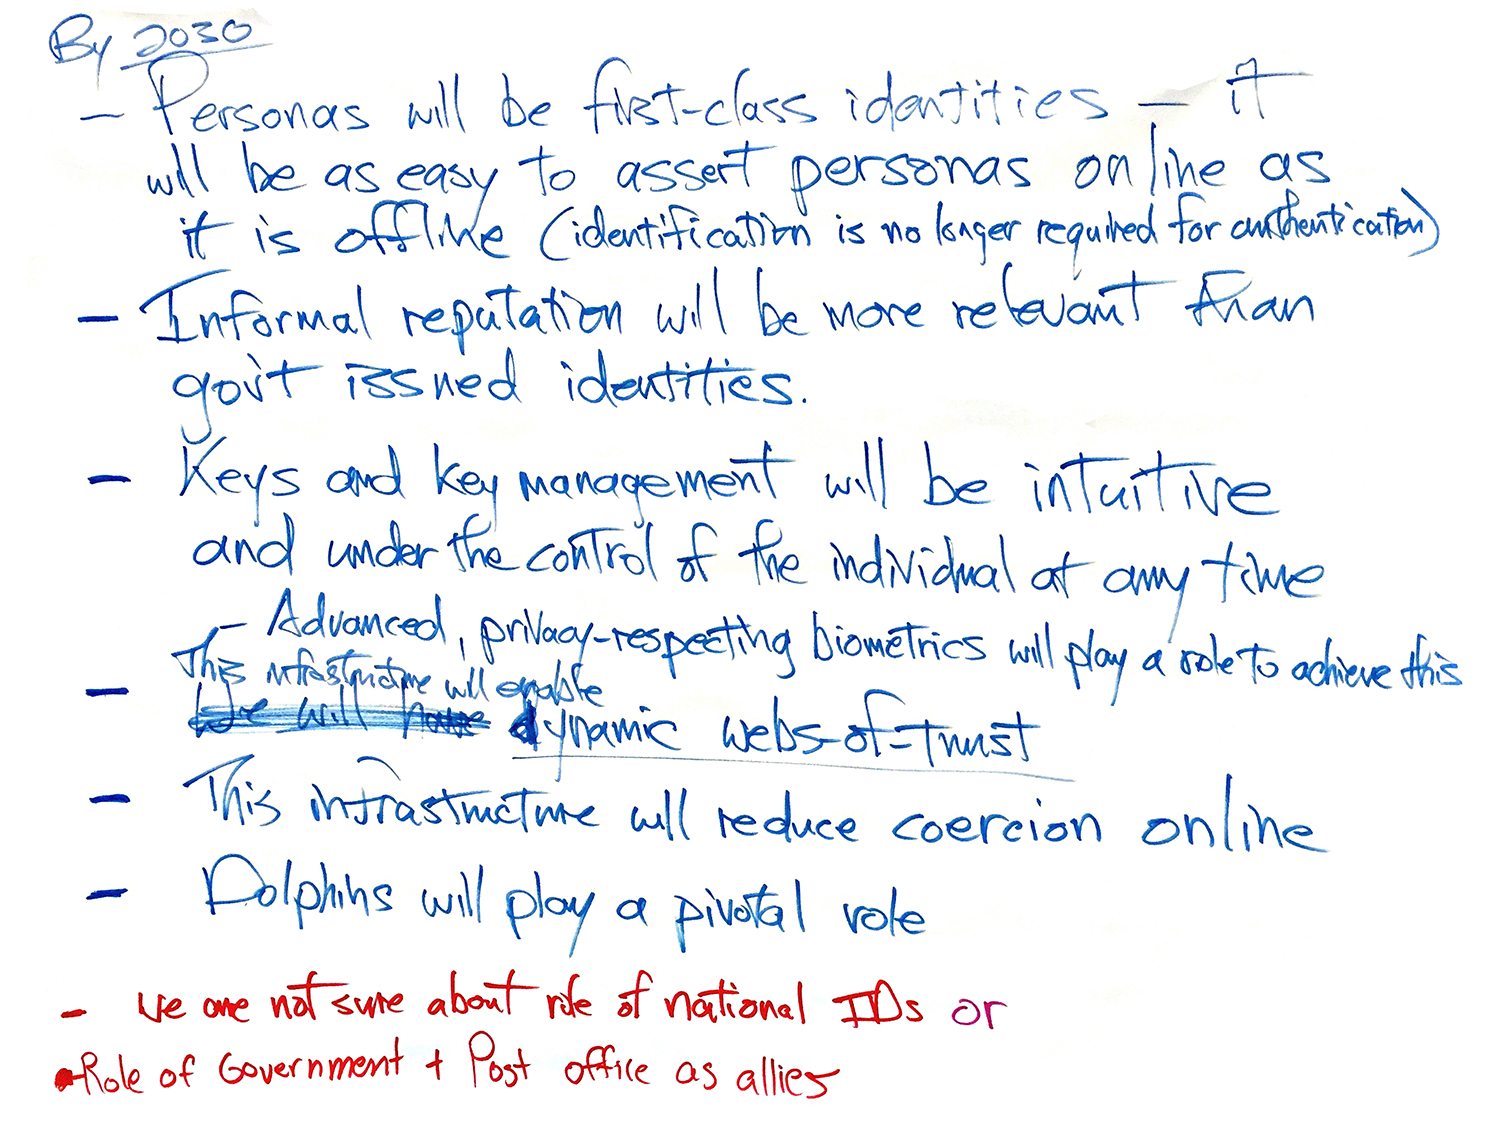 By 2030
- Personas will be first-class identities - it
will be as easy to assert personas online as
it is offline (identification is no longer required for authentication)
- Informal reputation will be more relevant than
gov't issued identities.
- Keys and key management will be intuitive
and under the control of the individual at any time
- Advanced, privacy-respecting biometrics will play a role to achieve this
- This infrastructure will enable
We will have dynamic webs-of-trust
- This infrastructure will reduce coercion online
- Dolphins will play a pivotal role
- We are not sure about role of national IDs or
- Role of Government + Post office as allies